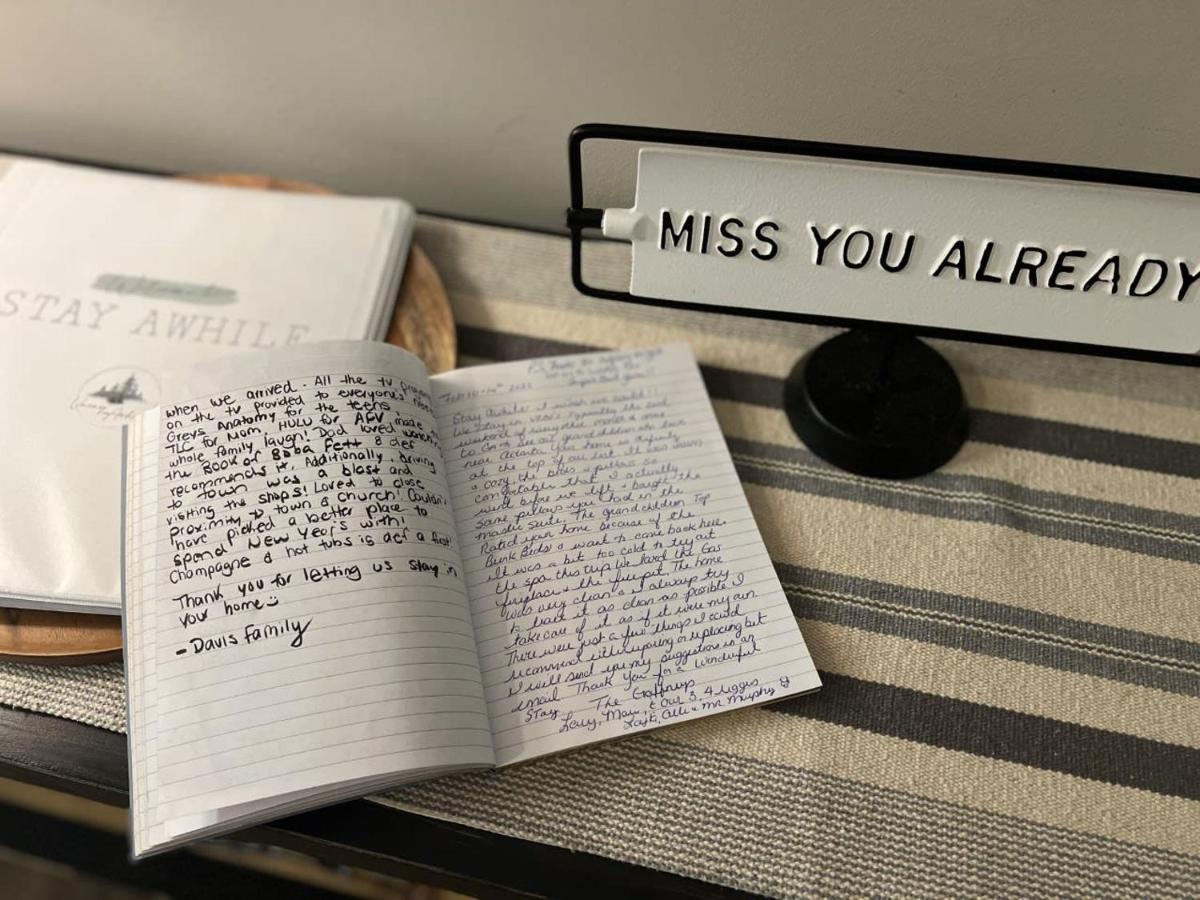 Welcome
STAY AWHILE
MISS YOU ALREADY
when we arrived. All the tv
on the tv provided to everyone's
Greys Anatomy for the teens,
TLC for Mom, HULU for AFV, made
whole family laugh! Dad loved
the Book of Boba Fett & def
recommends it. Additionally, driving
to town was a blast and
visiting the shops! Loved to close
proximity to town & church! Couldn't
have picked a better place to
spend New Year's with!
Champagne & hot tubs is def a
Thank you for letting us stay in
your home
- Davis Family
Stay Awhile I wish we could!!
We stay in
weekend of every other month
to see our grandchildren who live
near Atlanta. Your home is definitely
at the top of our list. It was warm,
& cozy, the beds & pillows so
comfortable that I actually
went before we left & bought the
same pillows you had in the
suite. The grandchildren Top
Rated your home because of the
Bunk Beds & want to come back here.
It was a bit too cold to try out
the spa this trip. We loved the Gas
fireplace & the fire pit. The home
was very clean & I always try
to leave it as clean as possible. I
take care of it as if it were my own
There were just a few things I could
recommend either repairing or replacing but
I will send you my suggestions in an
email. Thank you for a wonderful
Stay. The
Larry, & our 3, 4 leggers
& Mr. Murphy